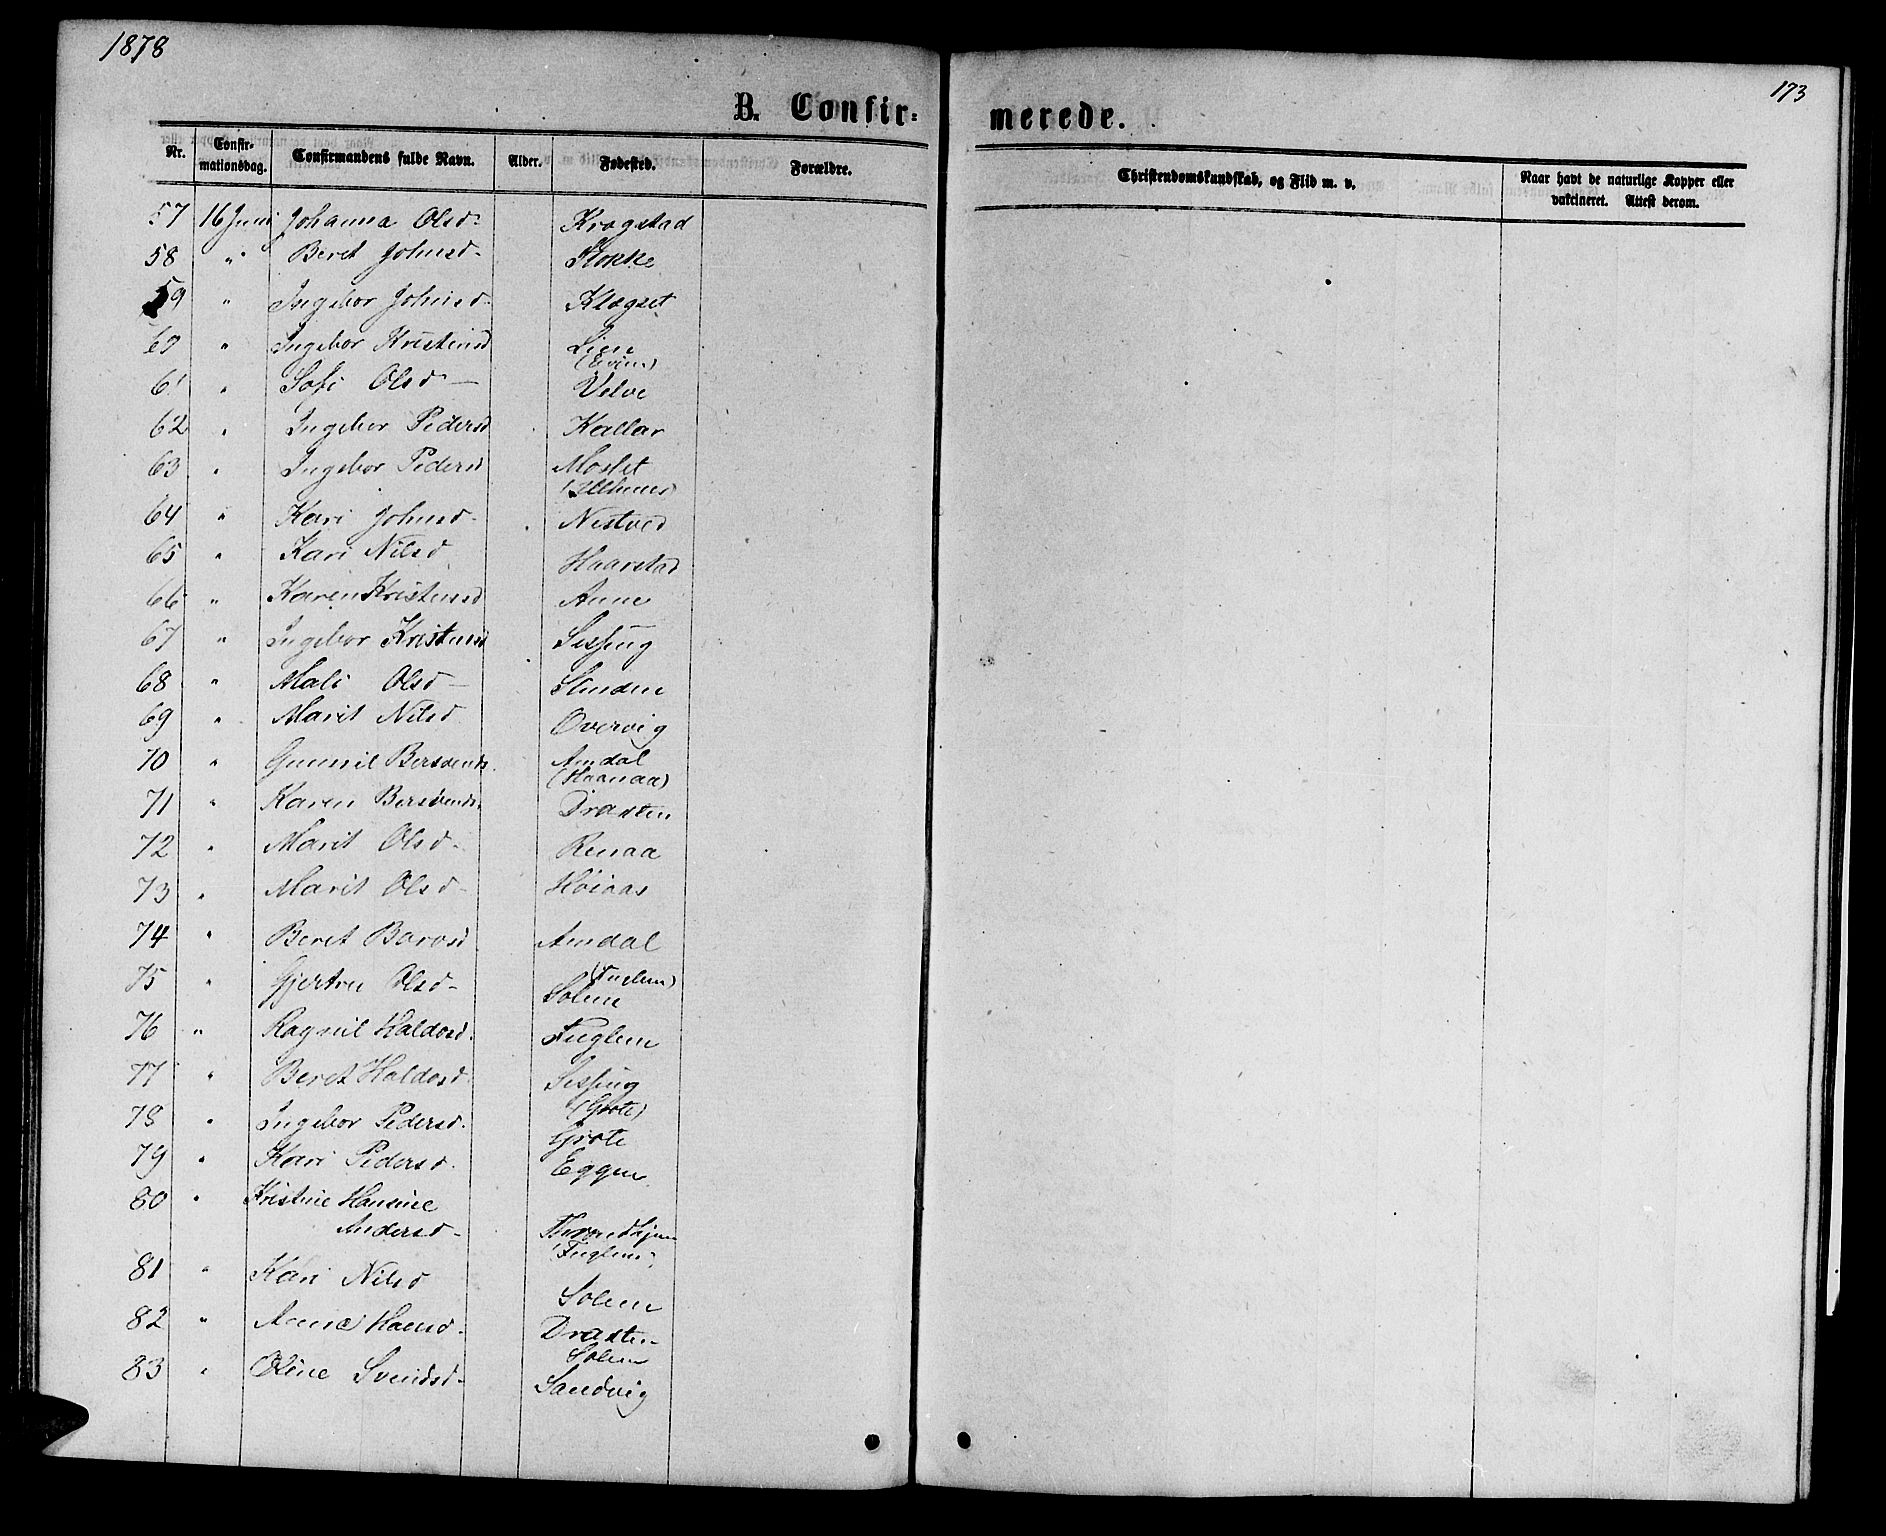 1878
173
B. Confir=
merede.
Nr. Confir-mationsdag. Confirmandens fulde Navn. Alder. Fødested. Forældre. Christendomskundskab, og Flid m. v. Naar havt de naturlige Kopper eller vakcineret. Attest derom.
57 16 Juni Johanna Olsd- Kragstad
58 " Beret Johnsd- Stokke
59 " Ingebor Johnsd- Klegset
60 " Ingebor Kristensd Lien
61 " Sofi Olsd- Velve
62 " Ingebor Pedersd Kallar
63 " Ingebor Pedersd Moslet
64 " Kari Johnsd- Nestved
65 " Kari Nilsd Haarstad
66 " Karen Kristensd Aune
67 " Ingebor Kristensd Sesseng
68 " Mali Olsd-
69 " Marit Nilsd Overvig
70 " Gunnil Bersvends. Amdal
(Haanaa)
71 " Karen Bersvends. Draxten
72 " Marit Olsd- Renaa
73 " Marit Olsd- Høiaas
74 " Beret Baravsd Amdal
75 " Gjertru Olsd-
(Fuglem)
Solem
76 " Ragnil Haldosd. Fuglem
77 " Beret Haldosd. Sesseng
(Grøte)
78 " Ingebor Pedersd. Grøte
79 " Kari Pedersd. Eggen
80 " Kristine Hansine
Andersd- Throndhjem
(Fuglem)
81 " Kari Nilsd Solem
82 " Anne Hansd. Draxten
Solem
83 " Oline Svendsd- Sandvig